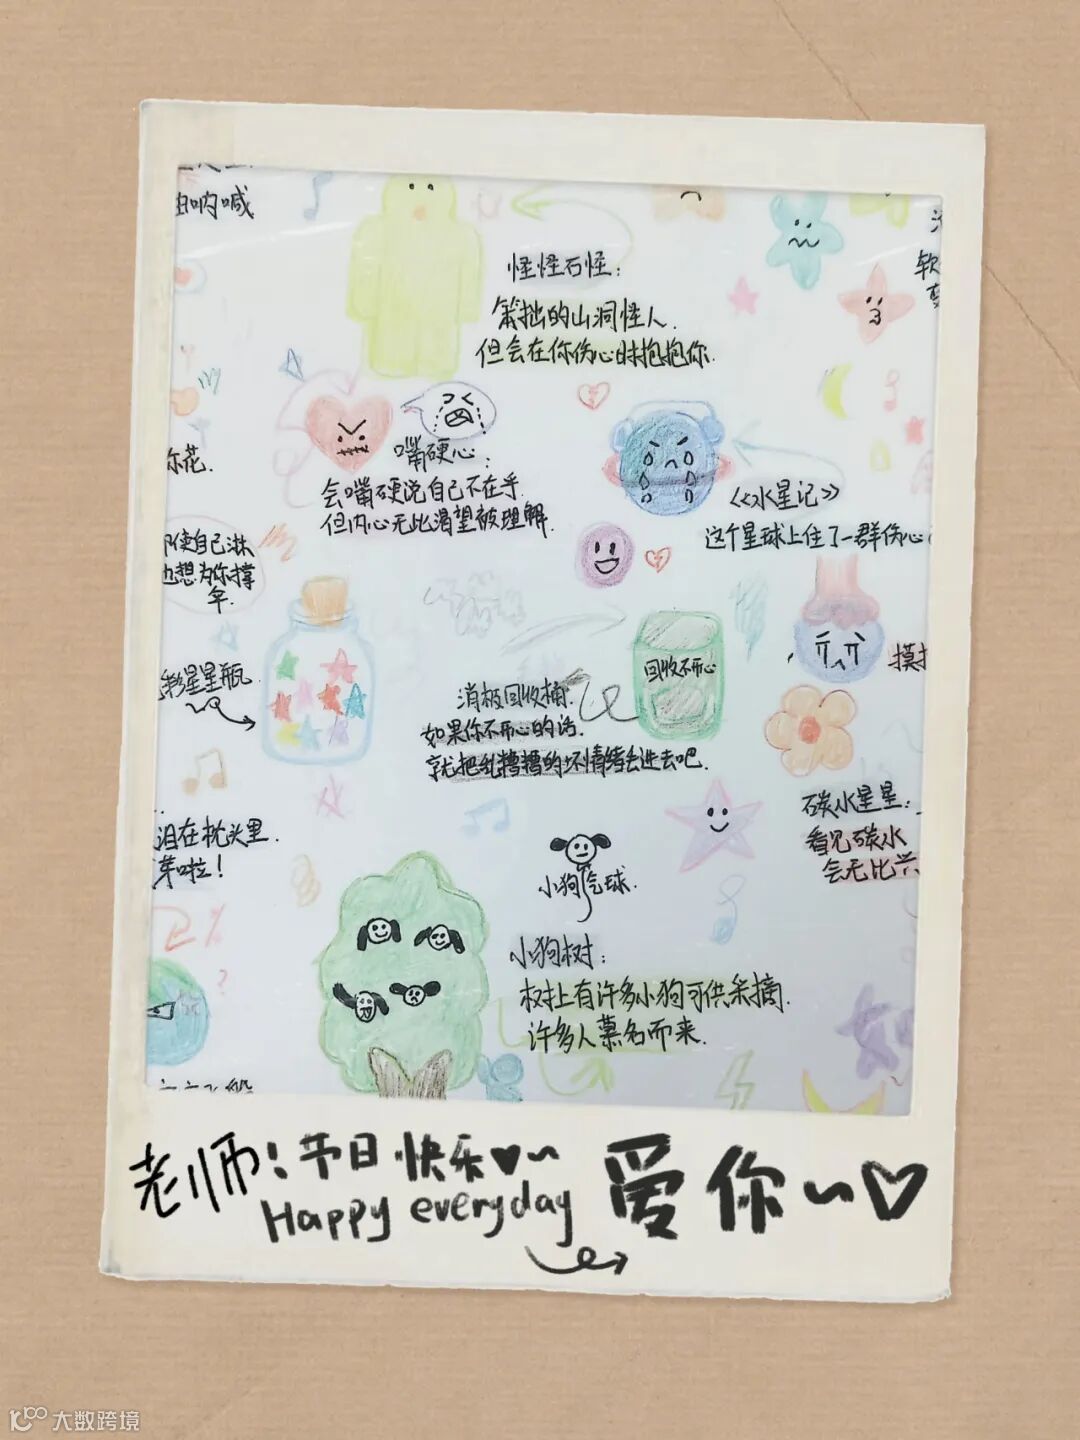 由呐喊
怪怪石怪：
笨拙的山洞怪人．
但会在你伤心时抱抱你．
软
你花．
嘴硬心：
会嘴硬说自己不在乎．
但内心无比渴望被理解．
《水星记》
这个星球上住了一群伤心
使自己淋
也想为你撑
伞．
星星瓶
回收不开心
消极回收桶．
如果你不开心的话．
就把乱糟糟的坏情绪丢进去吧．
摸
碳水星星：
看见碳水
会无比兴
泪在枕头里．
芽啦！
小狗气球．
小狗树：
树上有许多小狗可供采摘．
许多人慕名而来．
老师：节日快乐♥~
Happy everyday
爱你~♡
大数跨境